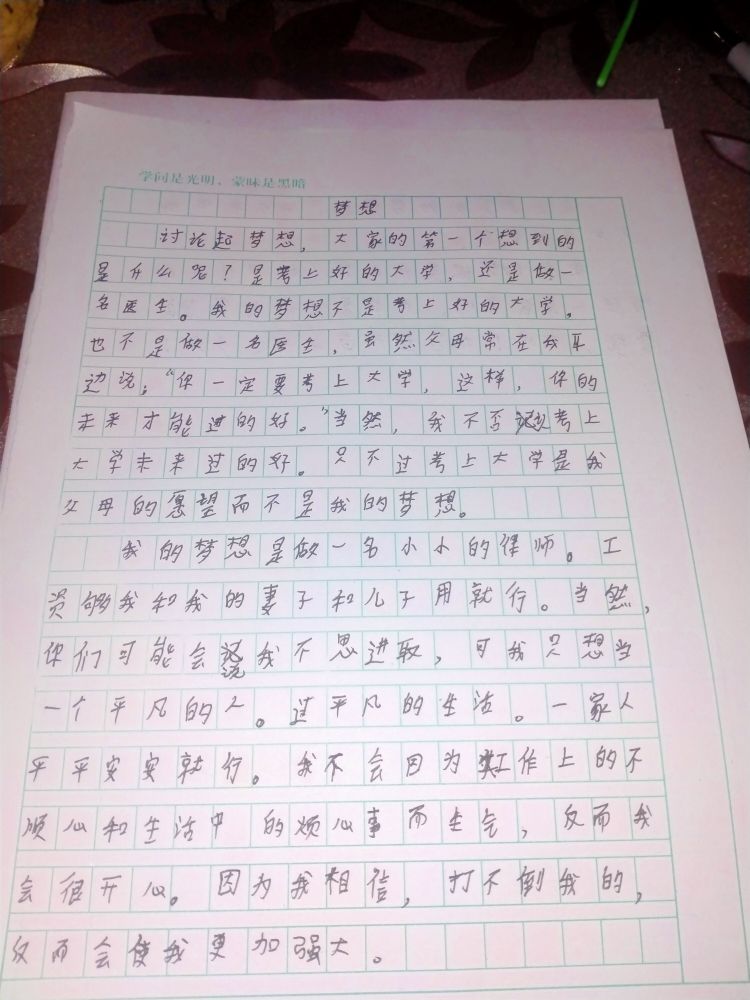 学问是光明，蒙昧是黑暗
梦想
讨论起梦想，大家的第一个想到的
是什么呢？是考上好的大学，还是做一
名医生。我的梦想不是考上好的大学，
也不是做一名医生，虽然父母常在我耳
边说："你一定要考上大学，这样，你的
未来才能过的好。"当然，我不否认考上
大学未来过的好。只不过考上大学是我
父母的愿望而不是我的梦想。
我的梦想是做一名小小的律师。工
资够我和我的妻子和儿子用就行。当然，
你们可能会说我不思进取，可我只想当
一个平凡的人。过平凡的生活。一家人
平平安安就行。我不会因为工作上的不
顺心和生活中的烦心事而生气，反而我
会很开心。因为我相信，打不倒我的，
反而会使我更加强大。